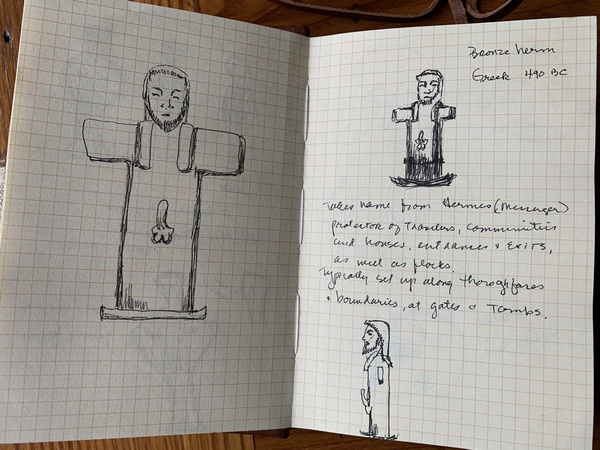 Bronze herm
Greek 490 BC
Takes name from Hermes (Messenger)
protector of Travelers, communities
and houses, entrances & Exits,
as well as flocks.
Typically set up along thoroghfares
& boundaries, at gates & Tombs.